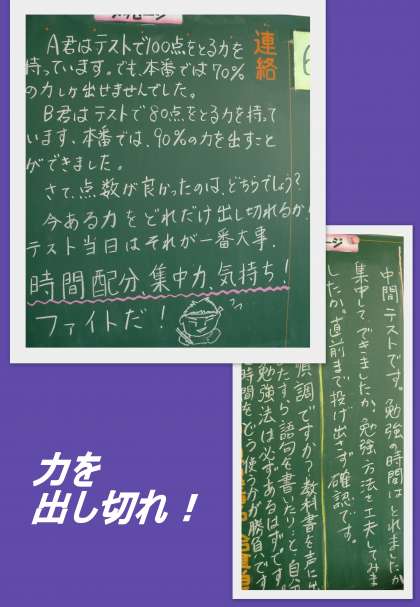 メッセージ
A君はテストで100点をとる力を
持っています。でも、本番では70%
の力しか出せませんでした。
B君はテストで80点をとる力を持って
います、本番では、90%の力を出すこと
ができました。
さて、点数が良かったのは、どちらでしょう?
今ある力をどれだけ出し切れるか!
テスト当日はそれが一番大事.
時間配分、集中力、気持ち!
ファイトだ!
連絡
6
ージ
中間テストです。勉強の時間はとれましたか
集中してできましたか。勉強方法を工夫してみま
したか。直前まで投げ出さず確認です。
調ですか?教科書を声に出
たすら語句を書いたり…と、自分
勉強法は必ずあるはずです。
時間をどう使うかが勝負です
力を
出し切れ!